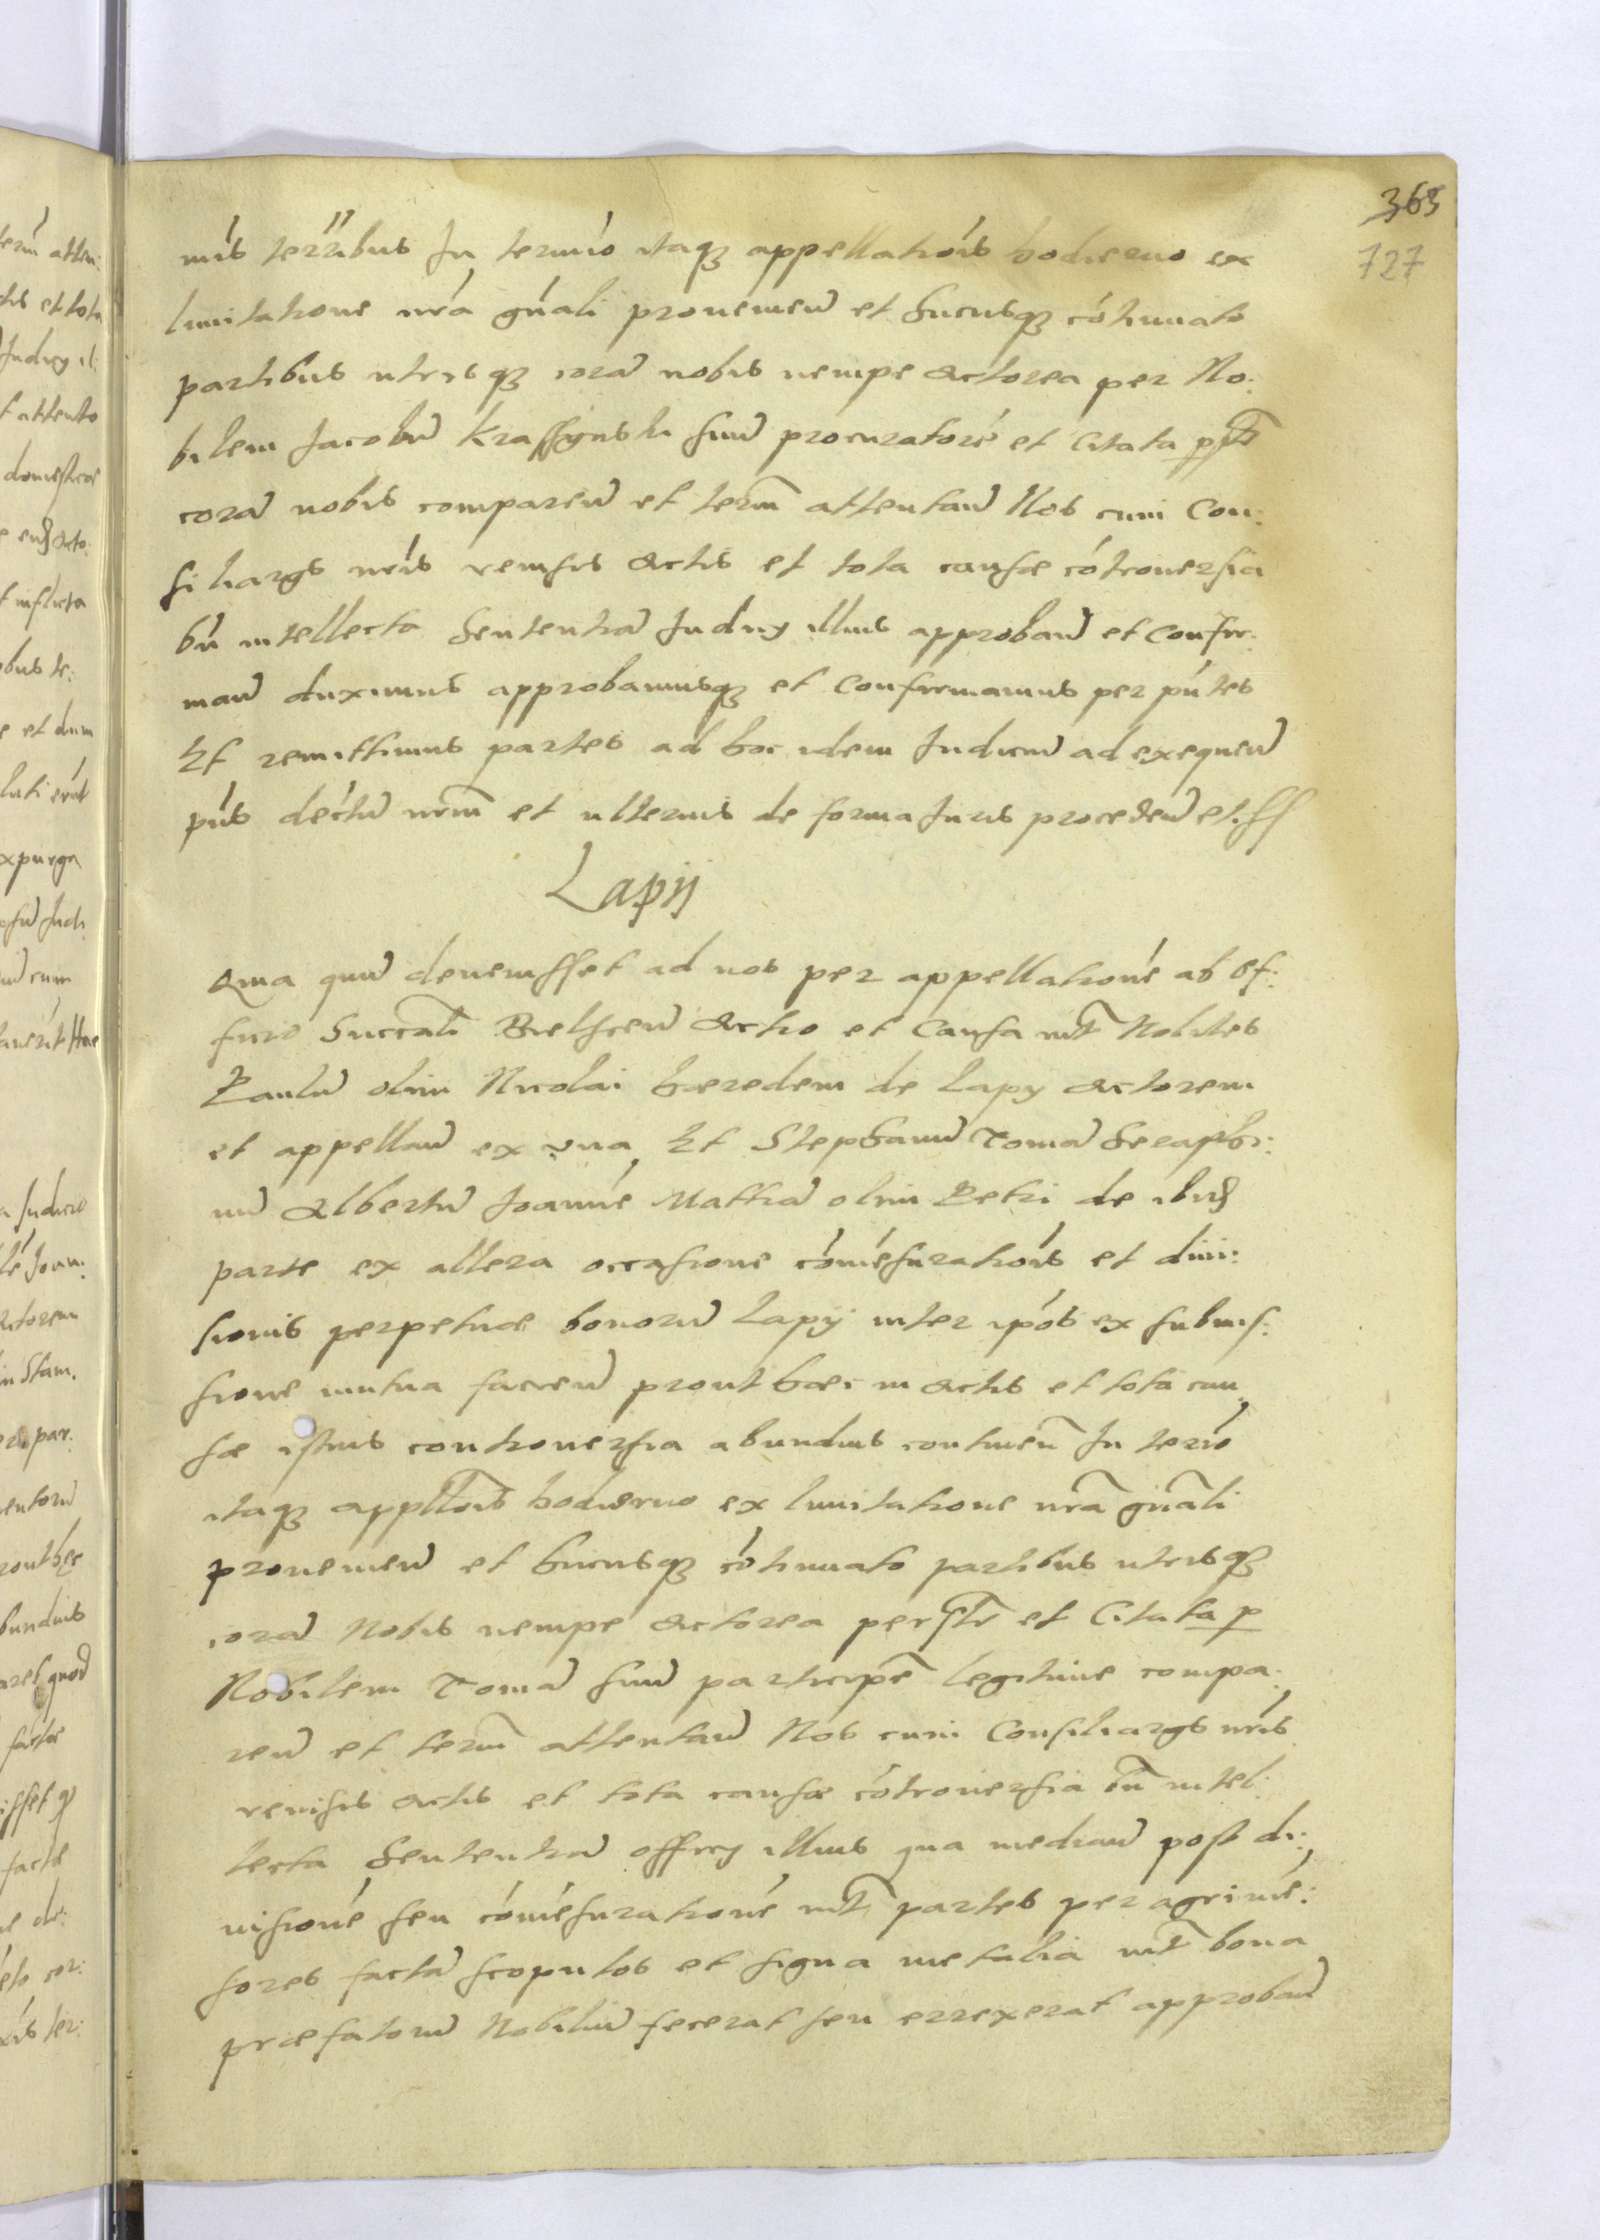 363
727
mis terribus In termio itaq3 appellatiois hodierno ex
limitatione nra gnali provenien et hucusq3 cotinuato
partibus utrisq3 cora nobis nempe Actorea per No:
bilem Jacobu Krassynski suu procuratore et Citata pstr
cora nobis comparen et term attentan Nos cum Con:
siliarys nris revisis Actis et tota causae cotroversia
bn intellecta Sententia Judicy illius approban et Confir:
man duximus approbamusq3 et Confirmamus per pntes
Et remittimus partes ad hoc idem Judiciu ad exequen
pns dectu nrm et ulterius de forma Juris proceden etc ss
Lapij
Quia quu devenisset ad nos per appellatione ab Of:
ficio Succali Bielscen Actio et Causa int Nobiles
Paulu olim Nicolai haeredem de Lapy Actorem
et appellan ex una, Et Stephanu Toma Seraphi:
nu Albertu Joanne Mathia olim Petri de ibid
parte ex altera occasione comesuratiois et divi:
sionis perpetuae bonoru Lapij inter ipos ex submis:
sione mutua facien prout haec in Actis et tota cau
sae istius controversia abundius continen In terio
itaq3 appltois hodierno ex limitatione nra gnali
provenien et hucusq3 cotinuato partibus utrisq3
cora Nobis nempe Actorea perstr et Citata p
Nobilem Toma suu participe legitime compa:
ren et term attentan Nos cum Consiliarys nris
revisis Actis et tota causae cotroversia bn intel:
lecta Sententia officy illius qua median post di:
visione seu comesuratione int partes per agrime:
sores facta scopulos et signa metalia int bona
praefatoru Nobiliu fecerat seu errexerat approban